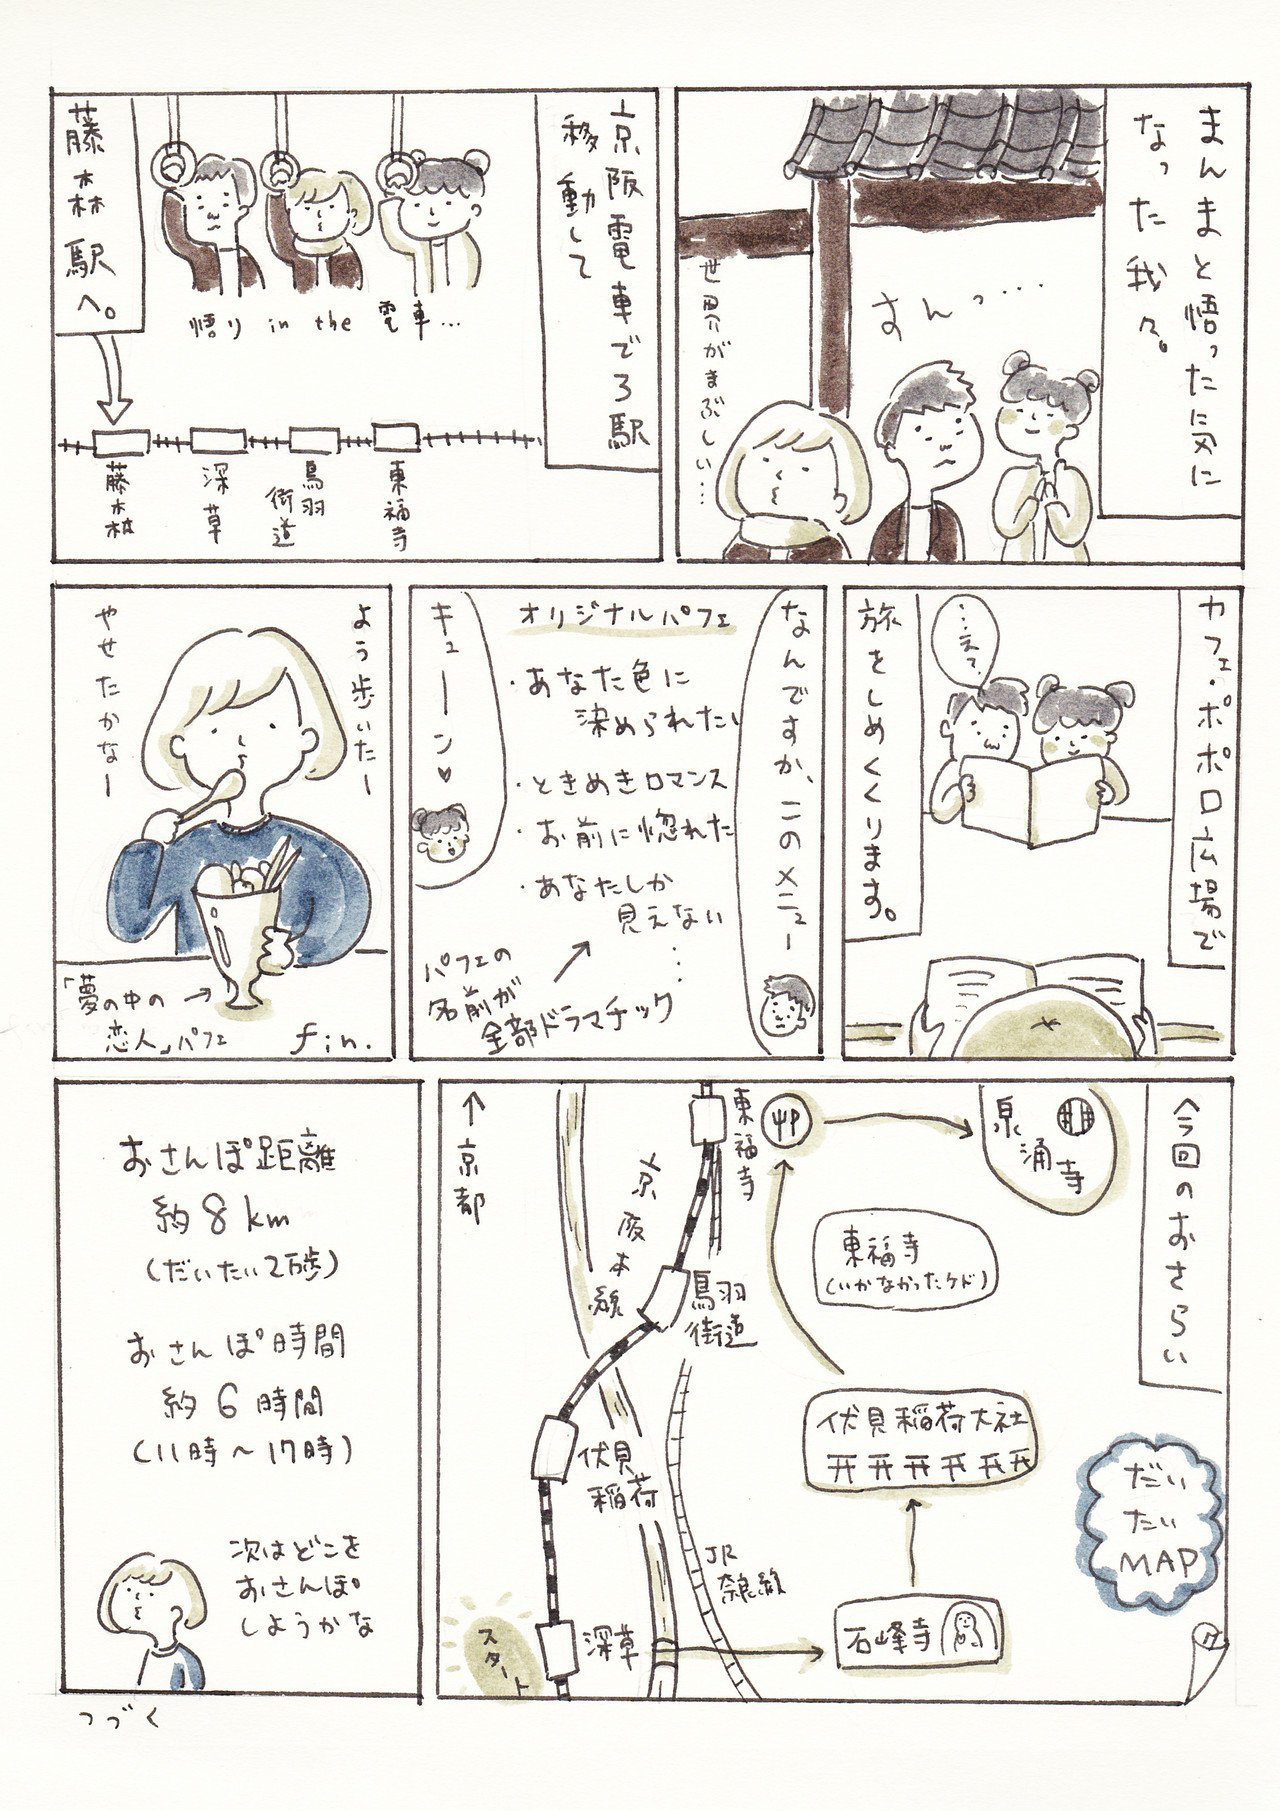 まんまと悟った気に
なった我々。
すんっ…
世界がまぶしい…
京阪電車で3駅
移動して
悟り in the 電車…
藤森駅へ。
東福寺
鳥羽
街道
深草
藤森
カフェ・ポポロ広場で
…えっ?
旅をしめくくります。
なんですか、このメニュー
オリジナルパフェ
・あなた色に
染められたい
・ときめきロマンス
・お前に惚れた
・あなたしか
見えない
⋮
パフェの
名前が
全部ドラマチック
キューーン♥
よう歩いたー
やせたかなー
「夢の中の
恋人」パフェ
fin.
今回のおさらい
だい
たい
MAP
泉涌寺
東福寺
東福寺
(いかなかったケド)
↑京都
京阪本線
鳥羽
街道
伏見稲荷大社
伏見
稲荷
JR
奈良線
石峰寺
深草
スタート
17
おさんぽ距離
約8km
(だいたい2万歩)
おさんぽ時間
約6時間
(11時~17時)
次はどこを
おさんぽ
しようかな
つづく